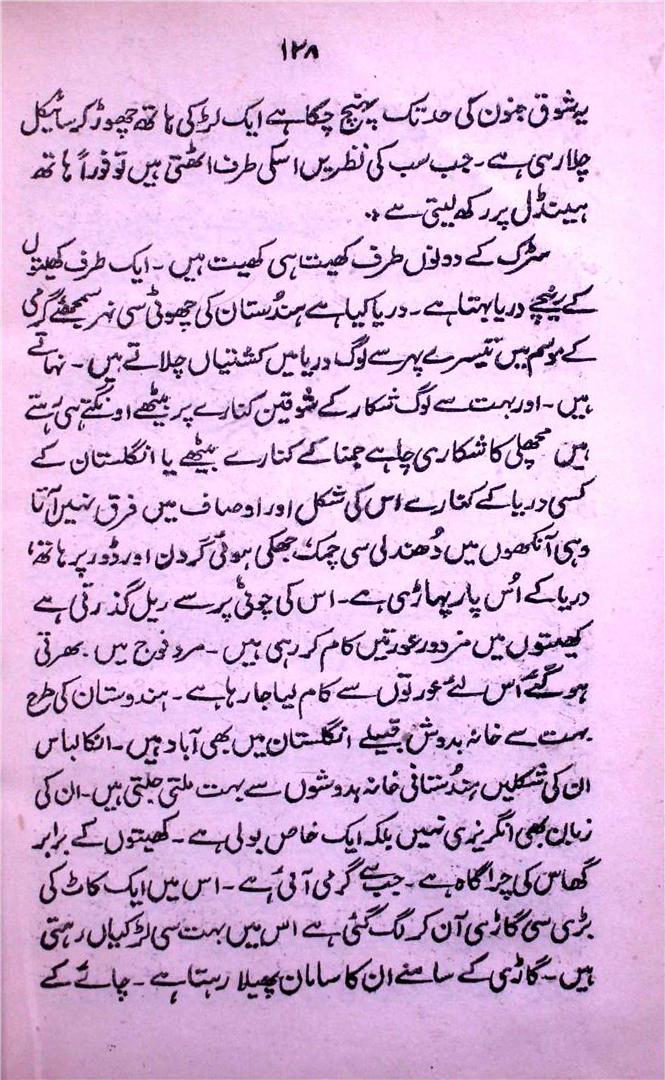 ۱۲۸
یہ شوق جنون کی حد تک پہنچ چکا ہے ایک لڑکی ہاتھ چھوڑ کر سائیکل
چلا رہی ہے۔ جب سب کی نظریں اسکی طرف اٹھتی ہیں تو فوراً ہاتھ
ہینڈل پر رکھ لیتی ہے۔
سڑک کے دونوں طرف کھیت ہی کھیت ہیں۔ ایک طرف کھیتوں
کے نیچے دریا بہتا ہے۔ دریا کیا ہے ہندُستان کی چھوٹی سی نہر سمجھئے گرمی
کے موسم میں تیسرے پہر سے لوگ دریا میں کشتیاں چلاتے ہیں۔ نہاتے
ہیں۔ اور بہت سے لوگ شکار کے شوقین کنارے پر بیٹھے اونگتے ہی رہتے
ہیں مچھلی کا شکاری چاہے جمنا کے کنارے بیٹھے یا انگلستان کے
کسی دریا کے کنارے اس کی شکل اور اوصاف میں فرق نہیں آتا
وہی آنکھوں میں دُھندلی سی چمک جھکی ہوئی گردن اور ڈور پر ہاتھ،
دریا کے اُس پار پہاڑی ہے۔ اس کی چوٹی پر سے ریل گذرتی ہے
کھیتوں میں مزدور عورتیں کام کر رہی ہیں۔ مرد فوج میں بھرتی
ہو گئے اس لئے عورتوں سے کام لیا جا رہا ہے۔ ہندوستان کی طرح
بہت سے خانہ بدوش قبیلے انگلستان میں بھی آباد ہیں۔ انکا لباس
ان کی شکلیں ہندُستانی خانہ بدوشوں سے بہت ملتی جلتی ہیں۔ ان کی
زبان بھی انگریزی نہیں بلکہ ایک خاص بولی ہے۔ کھیتوں کے برابر
گھاس کی چراگاہ ہے۔ جب سے گرمی آئی ہے۔ اس میں ایک کاٹ کی
بڑی سی گاڑی آن کر لگ گئی ہے اس میں بہت سی لڑکیاں رہتی
ہیں۔ گاڑی کے سامنے ان کا سامان پھیلا رہتا ہے۔ چائے کے